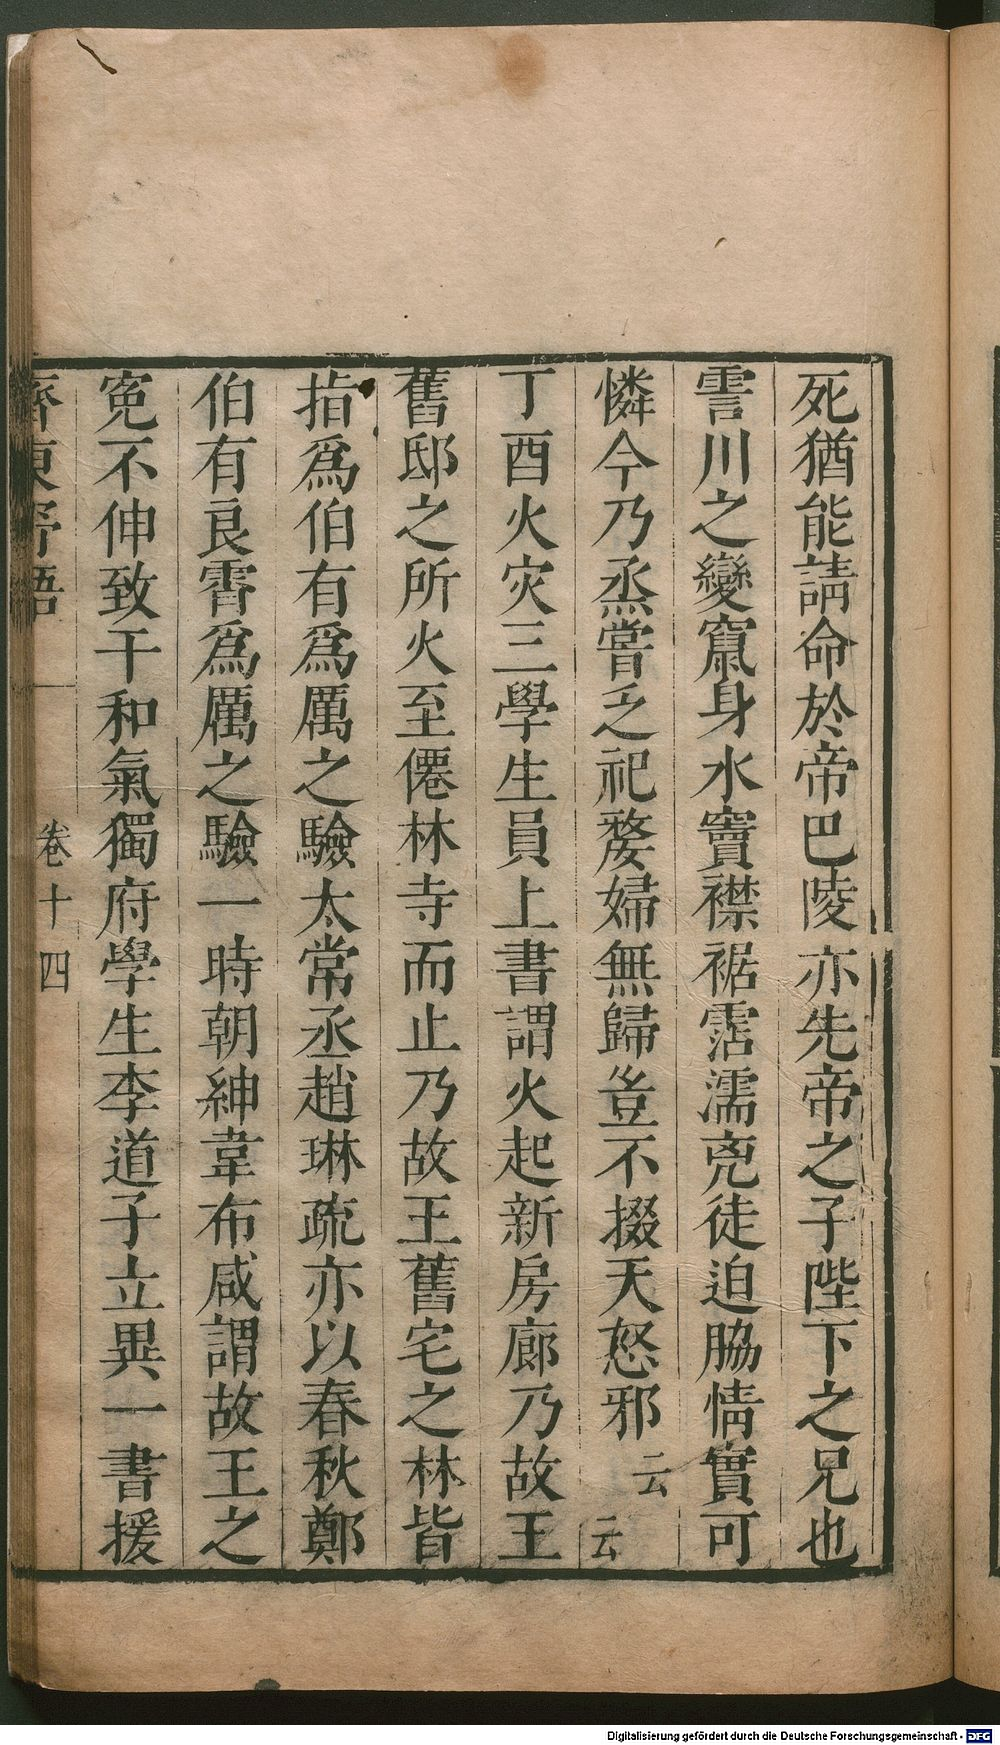 死猶能請命於帝巴陵亦先帝之子陛下之兄也
霅川之變竄身水竇襟裾霑濡兇徒迫脇情實可
憐今乃烝嘗乏祀嫠婦無歸豈不掇天怒邪云云
丁酉火灾三學生員上書謂火起新房廊乃故王
舊邸之所火至僊林寺而止乃故王舊宅之林皆
指爲伯有爲厲之驗太常丞趙琳疏亦以春秋鄭
伯有良霄爲厲之驗一時朝紳韋布咸謂故王之
寃不伸致干和氣獨府學生李道子立異一書援
齊東野語
卷十四
Digitalisierung gefördert durch die Deutsche Forschungsgemeinschaft - DFG